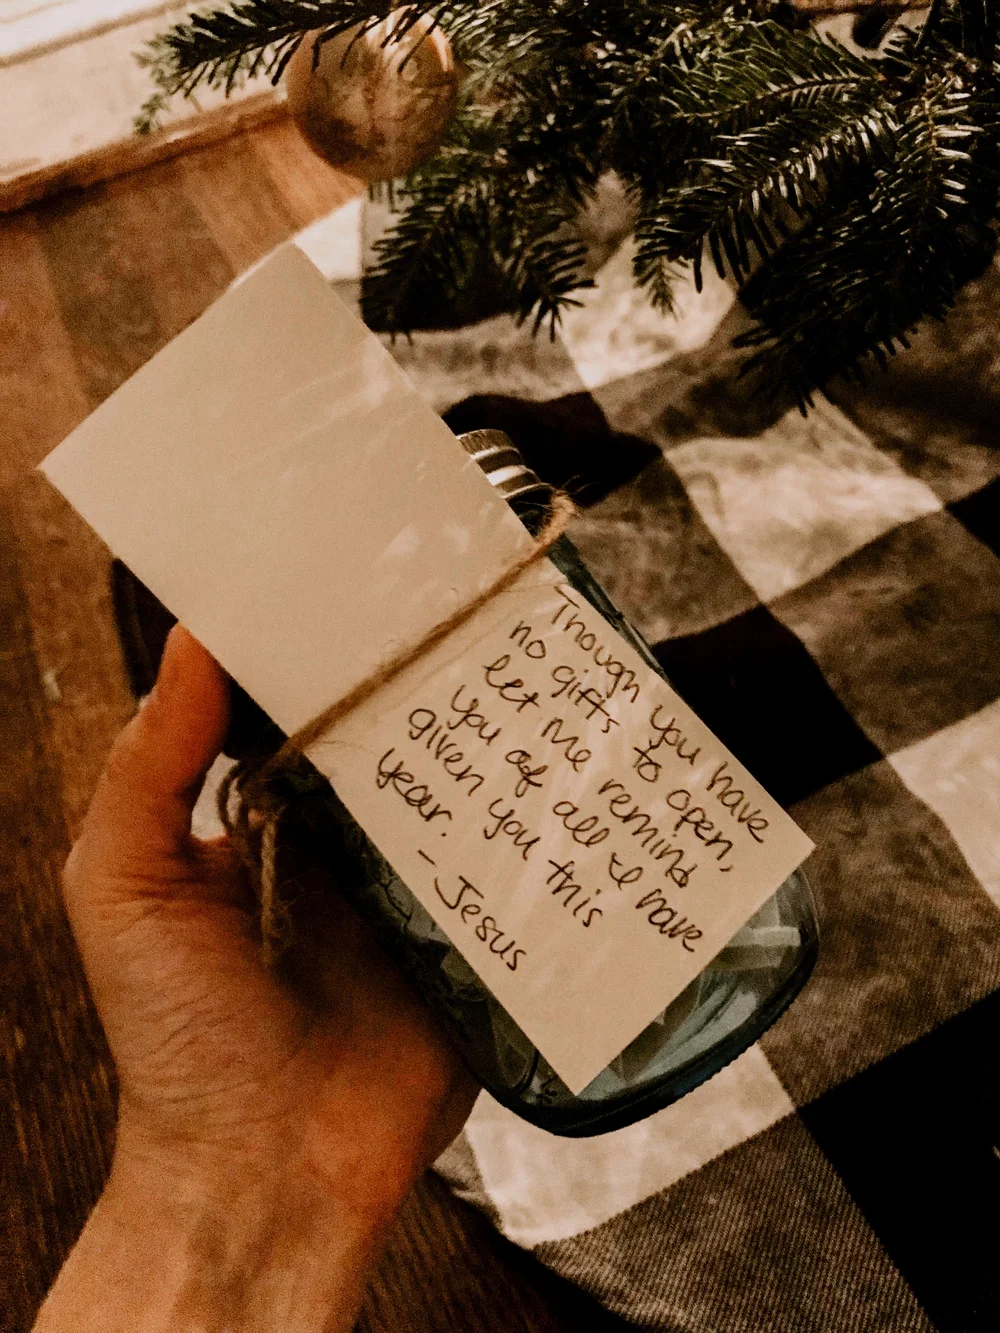 Though you have
no gifts to open,
let me remind
you of all I have
given you this
year.
- Jesus